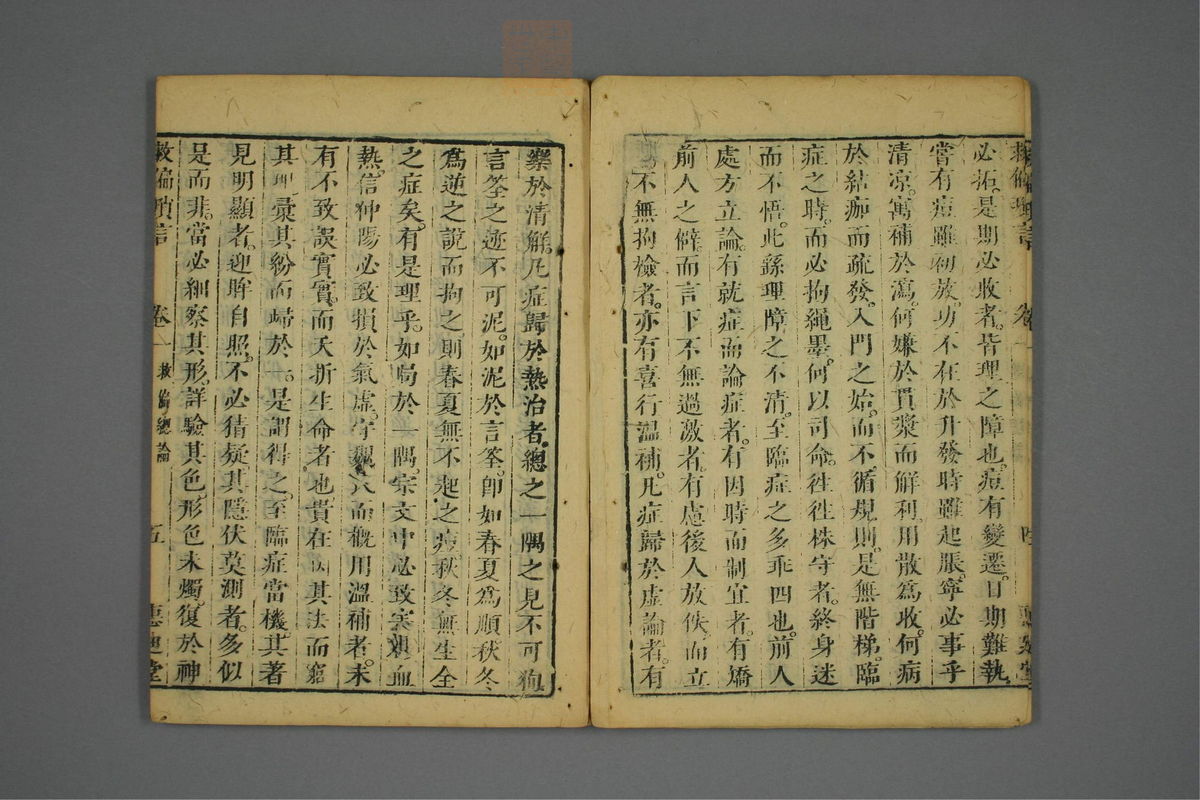 必拓是期必收者皆理之障也。痘有變遷日期難執
嘗有痘雖初放功不在於升發時雖起脹寧必事乎
清凉寓補於瀉何嫌於貫漿而解利用散爲收何病
於結痂而疏發入門之始而不循規則是無階梯臨
症之時而必拘繩墨何以司命徃徃株守者終身迷
而不悟此繇理障之不清至臨症之多乖四也前人
處方立論有就症而論症者有因時而制宜者有矯
前人之僻而言下不無過激者有慮後人放佚而立
不無拘檢者亦有喜行温補凡症歸於虛論者有
樂於清解凡症歸於熱治者總之一隅之見不可狥
言筌之迹不可泥如泥於言筌卽如春夏爲順秋冬
爲逆之說而拘之則春夏無不起之痘秋冬無生全
之症矣有是理乎如局於一隅宗文中必致寒頻血
熱信仲陽必致損於氣虛守而槪用溫補者未
有不致誤實實而夭折生命者也貴在其法而窮
其理彙其紛而歸於一是謂得之至臨症當機其著
見明顯者迎眸自照不必猜疑其隱伏莫測者多似
是而非當必細察其形詳驗其色形色未燭復於神
救偏瑣言 卷一 救偏總論 五 惠迪堂